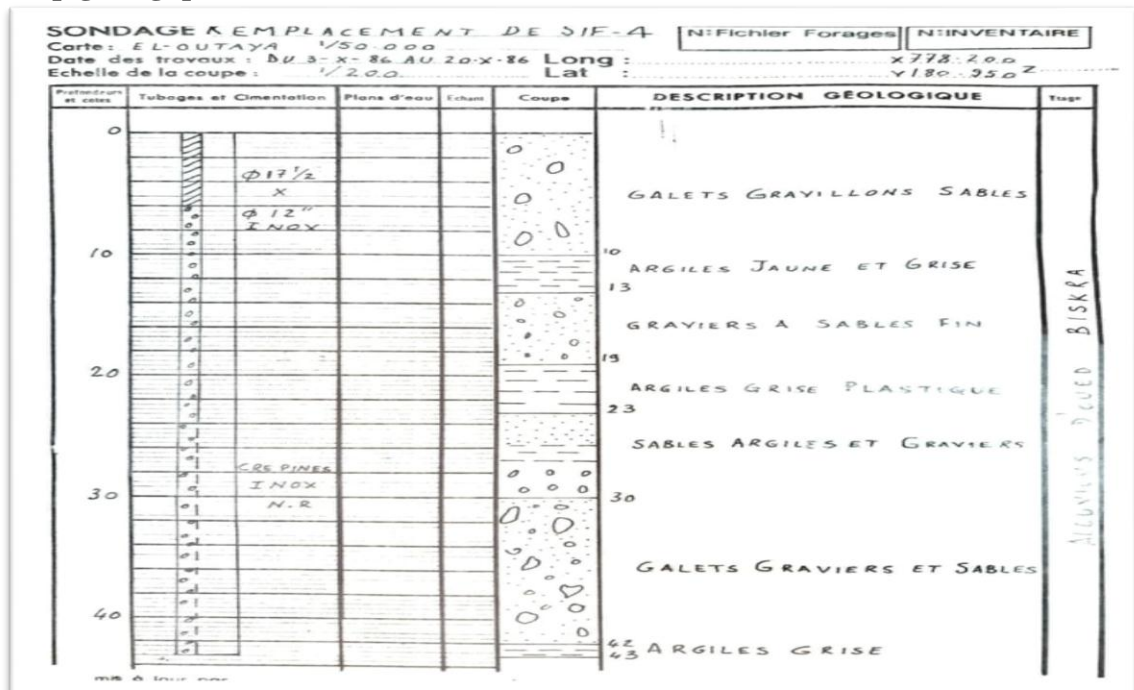 SONDAGE REMPLACEMENT DE SIF-4
N:Fichier Forages
N:INVENTAIRE
Carte: EL-OUTAYA 1/50.000
Date des travaux : DU 3-X-86 AU 20-X-86 Long : X 778.200
Echelle de la coupe : 1/200 Lat : Y 180.950 Z
Profondeurs et cotes
Tubages et Cimentation
Plans d'eau
Echant
Coupe
DESCRIPTION GÉOLOGIQUE
0
Φ17 1/2
X
Φ 12"
INOX
GALETS GRAVILLONS SABLES
10
10
ARGILES JAUNE ET GRISE
13
GRAVIERS A SABLES FIN
19
20
ARGILES GRISE PLASTIQUE
23
SABLES ARGILES ET GRAVIERS
CREPINES
INOX
N.R
30
30
GALETS GRAVIERS ET SABLES
40
42
43 ARGILES GRISE
ALLUVIONS D'OUED BISKRA
mis à jour par